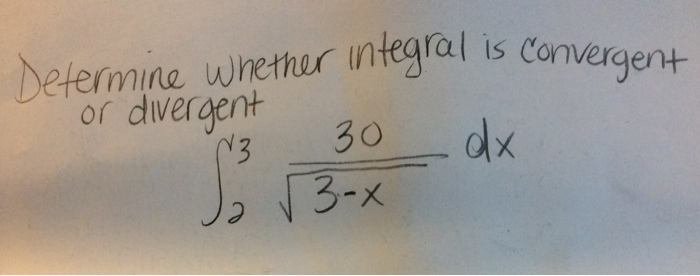 Determine whether integral is convergent
or divergent
∫₂³ 30/√(3-x) dx